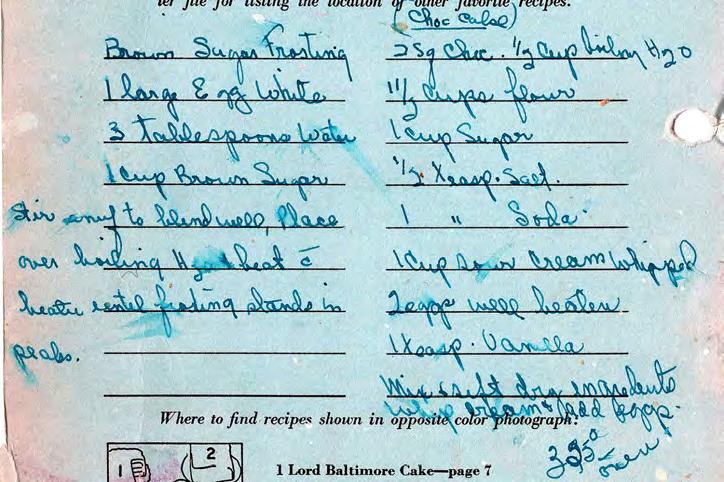 ter file for listing the location of other favorite recipes.
(Choc Cake)
Brown Sugar Frosting
1 large Egg White
3 tablespoons Water
1 Cup Brown Sugar
Stir enuf to blend well, Place
over boiling H2O + beat c̄
beater until frosting stands in
peaks.
2 Sq Choc. 1/2 Cup boiling H2O
1 1/2 Cups flour
1 Cup Sugar
1/2 teasp. Salt.
1 " Soda
1 Cup sour cream whipped
2 eggs well beaten
1 teasp. Vanilla
Mix & sift dry ingredients
whip cream & add eggs.
oven
Where to find recipes shown in opposite color photograph:
1
2
1 Lord Baltimore Cake—page 7